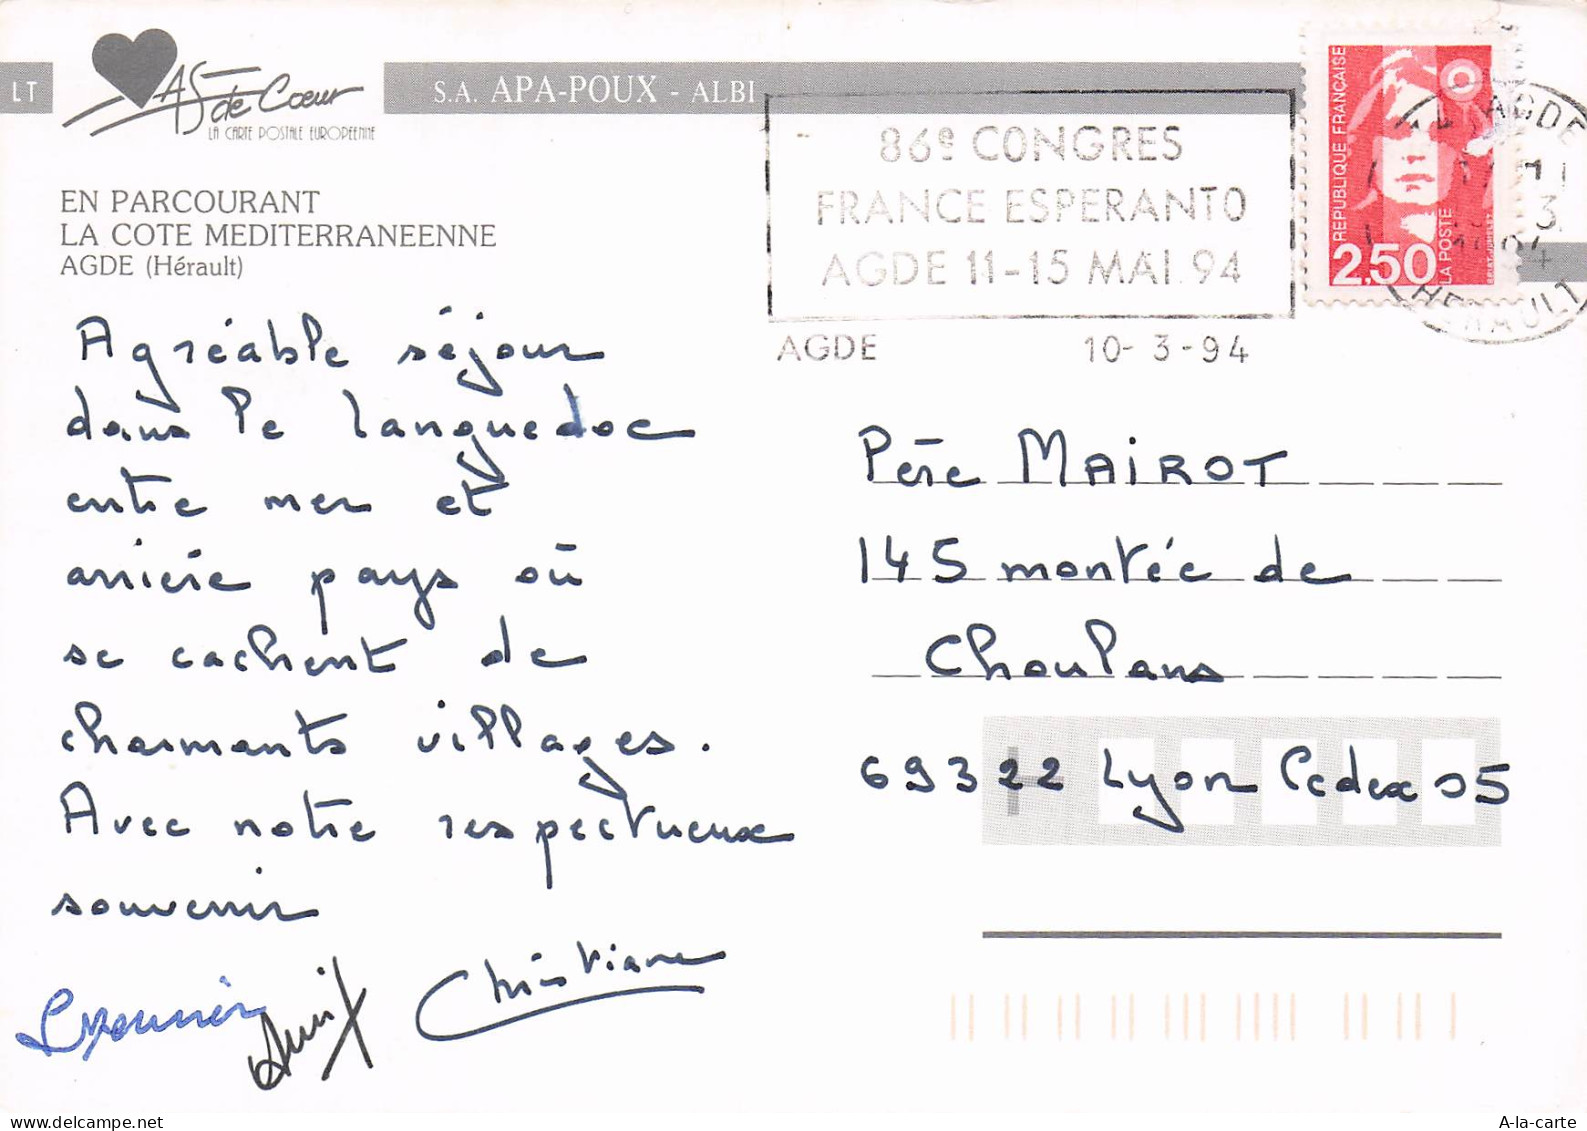 LT
AS de Coeur
LA CARTE POSTALE EUROPEENNE
S.A. APA-POUX - ALBI
EN PARCOURANT
LA COTE MEDITERRANEENNE
AGDE (Hérault)
86e CONGRES
FRANCE ESPERANTO
AGDE 11-15 MAI.94
AGDE 10-3-94
REPUBLIQUE FRANÇAISE
2,50
LA POSTE
AGDE
HERAULT
Agréable séjour
dans le Languedoc
entre mer et
arrière pays où
se cachent de
charmants villages.
Avec notre respectueux
souvenir
Christiane
Père MAIROT
145 montée de
Choulans
69322 Lyon Cedex 05
A-la-carte